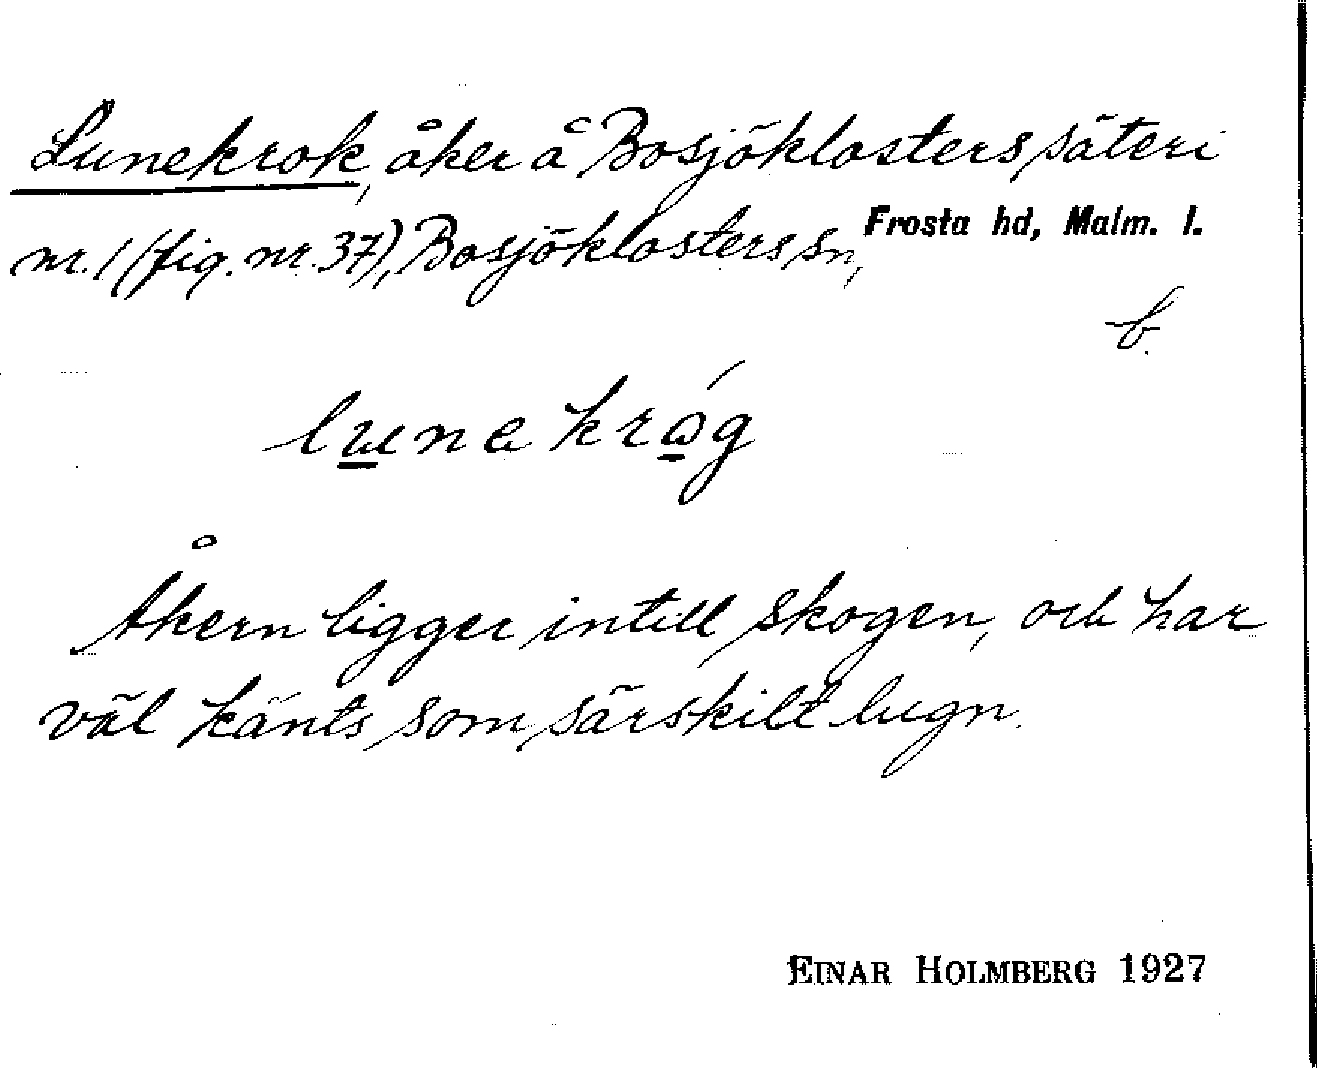 Lunekrok, åker å Bosjöklosters säteri
nr. 1 (fig. nr. 37), Bosjöklosters sn, Frosta hd, Malm. l.
b.
Åkern ligger intill skogen, och har
väl känts som särskilt lugn.
EINAR HOLMBERG 1927